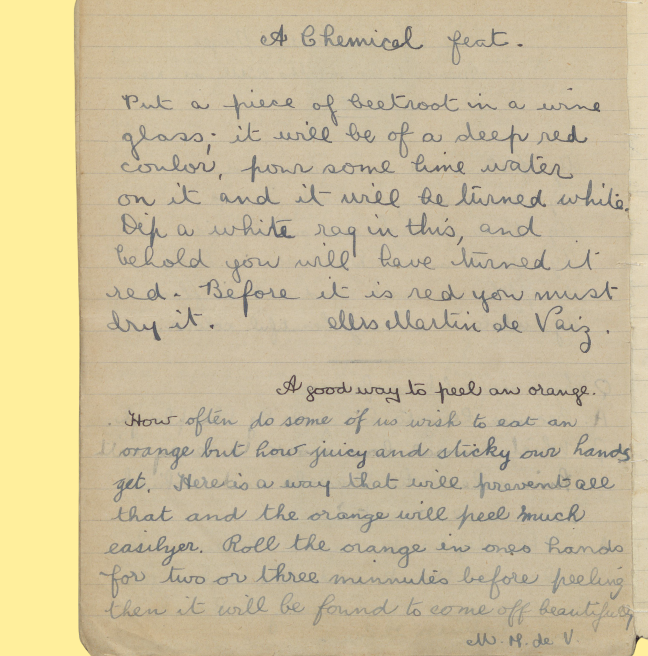 A Chemical feat.
Put a piece of beetroot in a wine
glass; it will be of a deep red
coulor, pour some lime water
on it and it will be turned white.
Dip a white rag in this, and
behold you will have turned it
red. Before it is red you must
dry it. Mrs Martin de Vaiz.
A good way to peel an orange.
How often do some of us wish to eat an
orange but how juicy and sticky our hands
get. Here is a way that will prevent all
that and the orange will peel much
easilyer. Roll the orange in ones hands
for two or three minnutes before peeling
then it will be found to come off beautifully
M. M. de V.